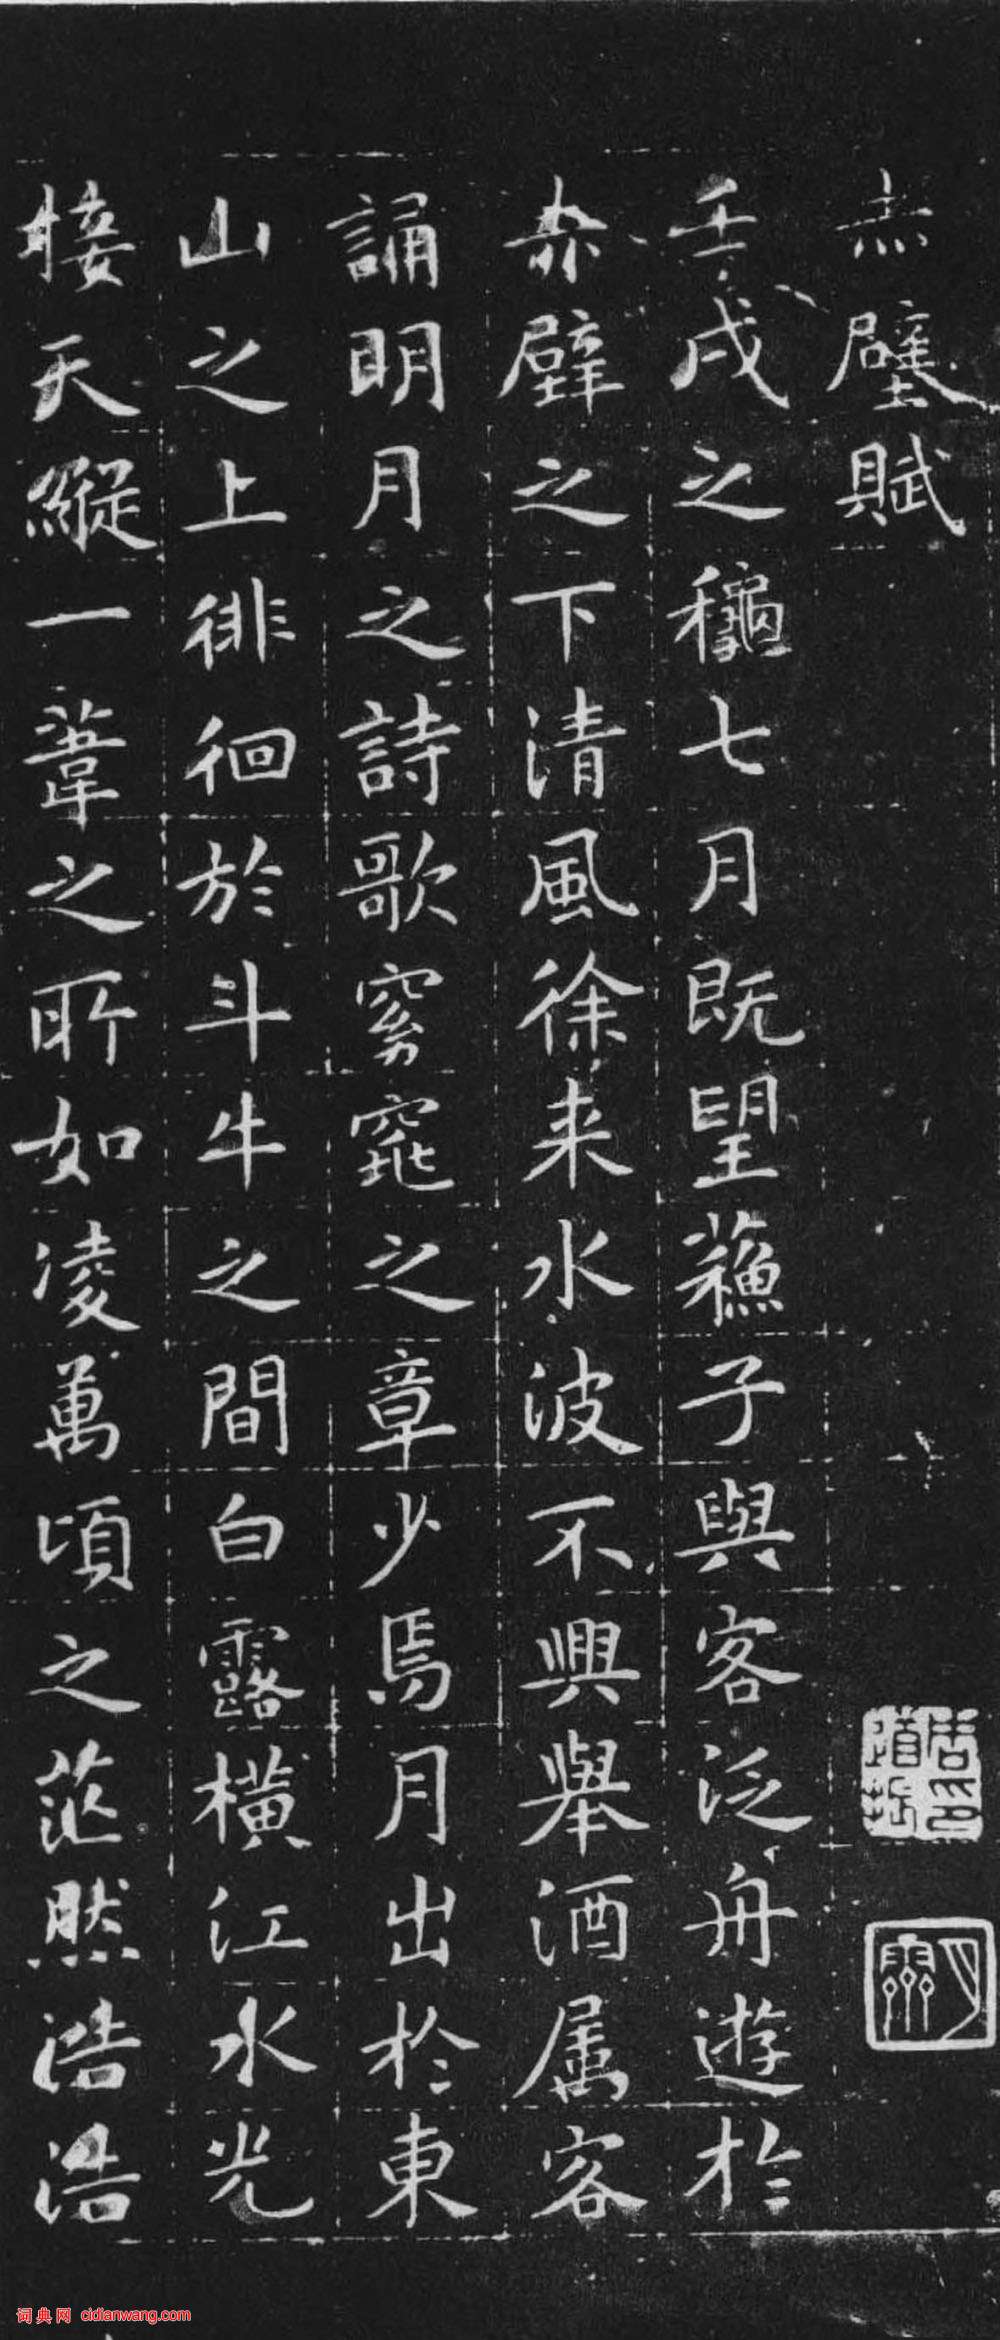 赤壁賦
壬戌之龝七月既望蘓子與客泛舟遊於
赤壁之下清風徐来水波不興舉酒属客
誦明月之詩歌窈窕之章少焉月出於東
山之上徘徊於斗牛之間白露橫江水光
接天縱一葦之所如凌萬頃之茫然浩浩
词典网 cidianwang.com